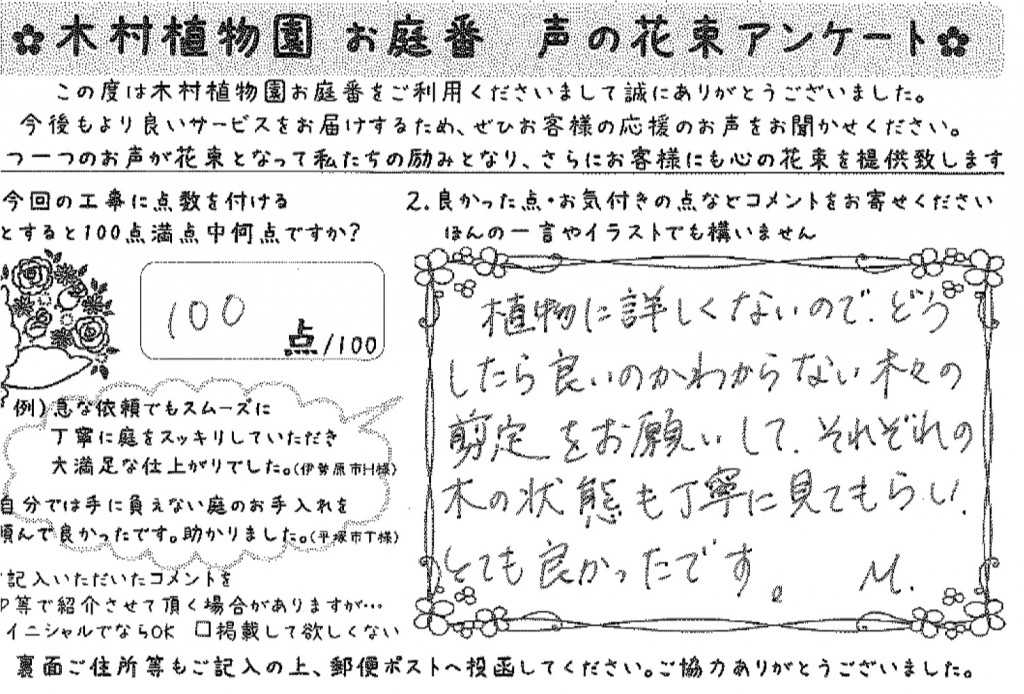 木村植物園 お庭番 声の花束アンケート
この度は木村植物園お庭番をご利用くださいまして誠にありがとうございました。
今後もより良いサービスをお届けするため、ぜひお客様の応援のお声をお聞かせください。
つ一つのお声が花束となって私たちの励みとなり、さらにお客様にも心の花束を提供致します
今回の工事に点数を付ける
とすると100点満点中何点ですか?
100
点/100
例)急な依頼でもスムーズに
丁寧に庭をスッキリしていただき
大満足な仕上がりでした。(伊勢原市H様)
自分では手に負えない庭のお手入れを
頼んで良かったです。助かりました。(平塚市T様)
ご記入いただいたコメントを
P等で紹介させて頂く場合がありますが…
イニシャルでならOK □掲載して欲しくない
2.良かった点・お気付きの点などコメントをお寄せください
ほんの一言やイラストでも構いません
植物に詳しくないので、どう
したら良いのかわからない木々の
剪定をお願いして、それぞれの
木の状態も丁寧に見てもらい、
とても良かったです。 M.
裏面ご住所等もご記入の上、郵便ポストへ投函してください。ご協力ありがとうございました。